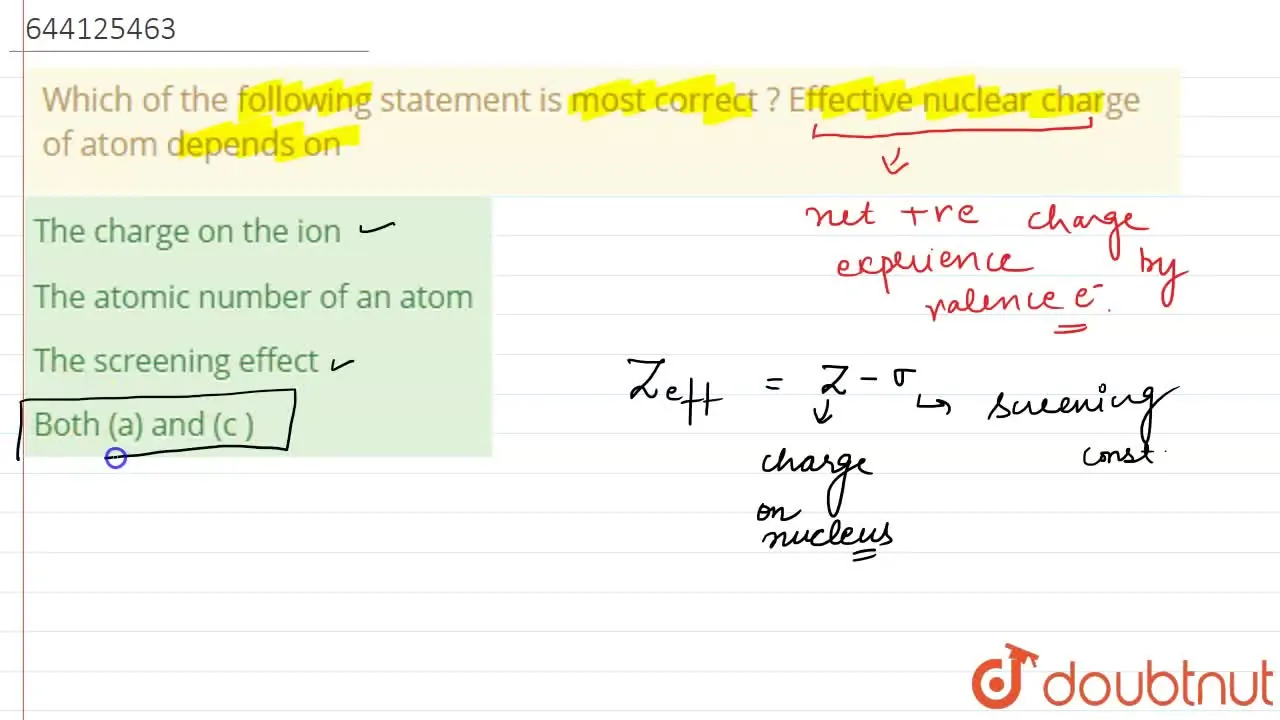 644125463
Which of the following statement is most correct ? Effective nuclear charge
of atom depends on
The charge on the ion
The atomic number of an atom
The screening effect
Both (a) and (c )
net +ve charge
experience by
valence e-.
Zeff = Z - σ
screening
const.
charge
on
nucleus
doubtnut